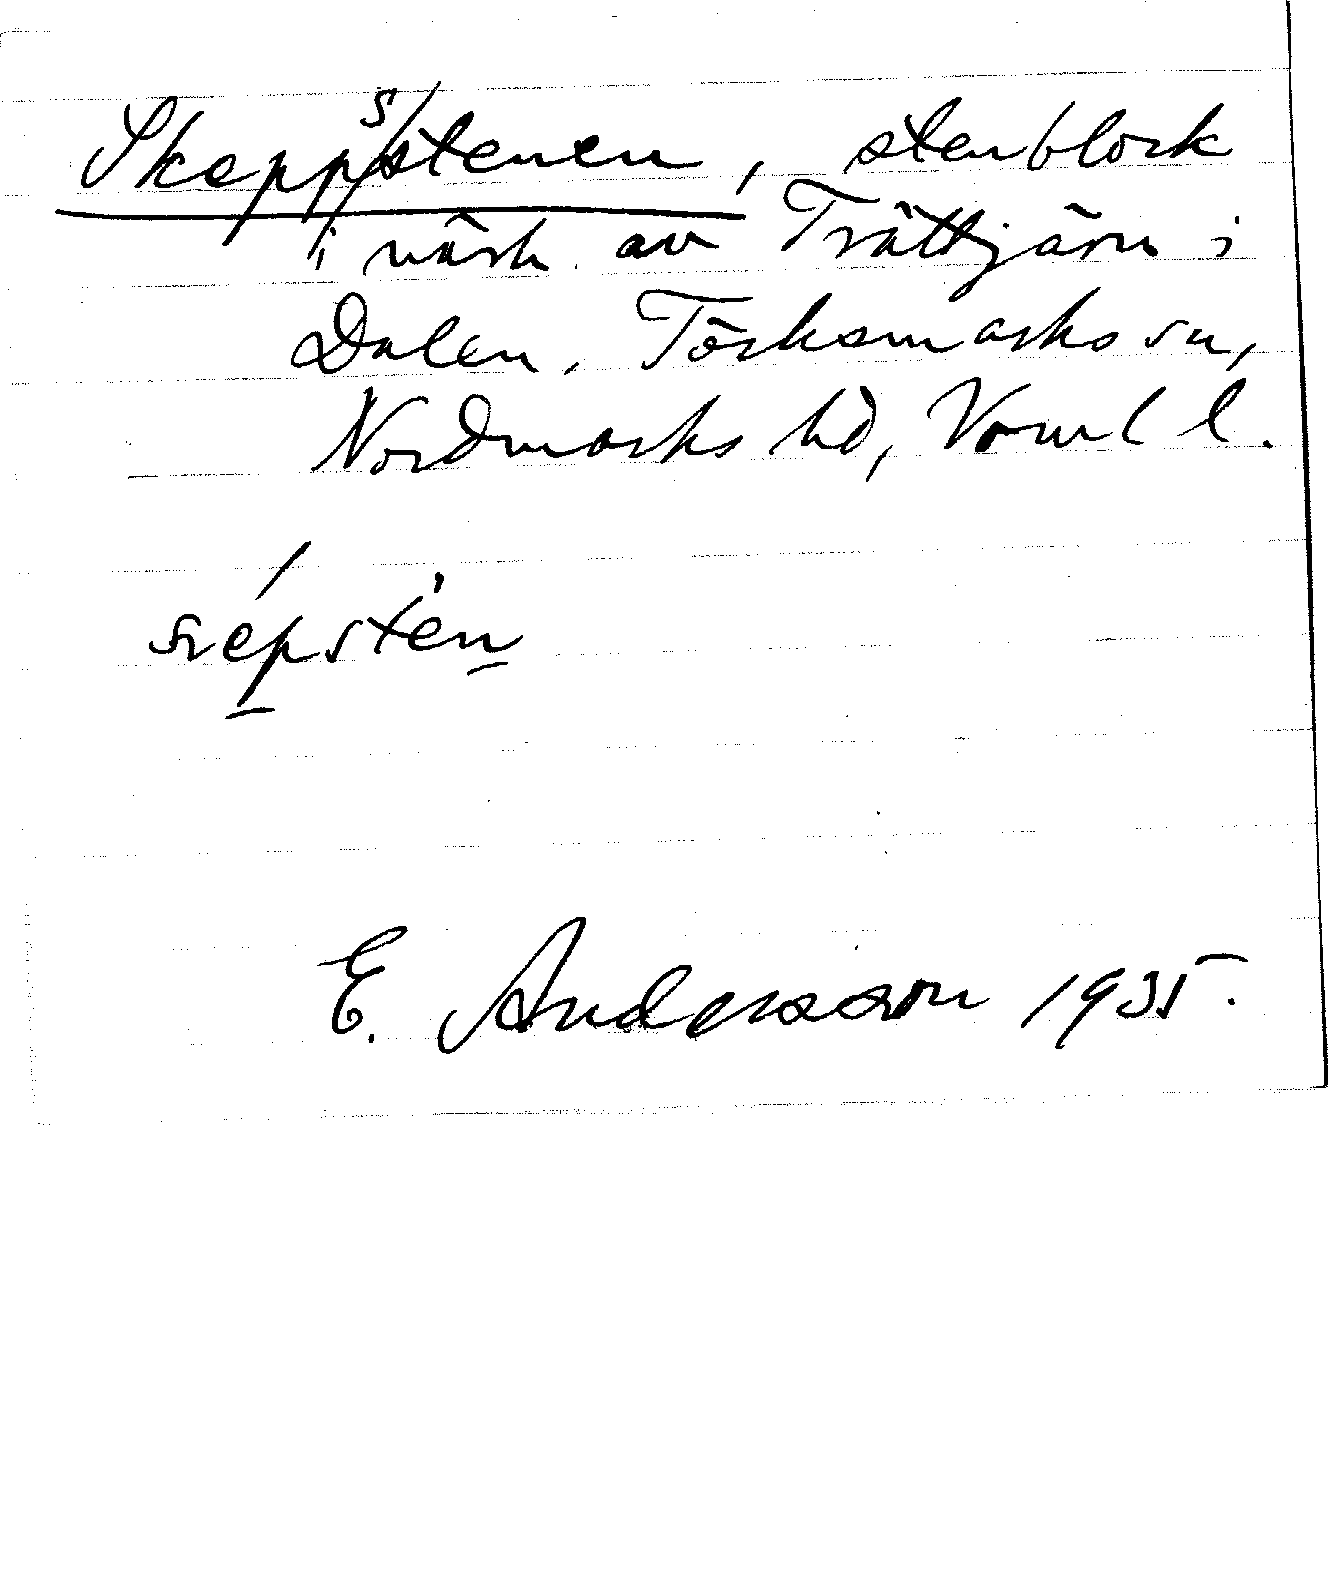 Skeppsstenen, stenblock
i närh. av Trättjärn i
Dalen, Törksmarks sn,
Nordmarks hd, Värml l.
E. Andersson 1935.